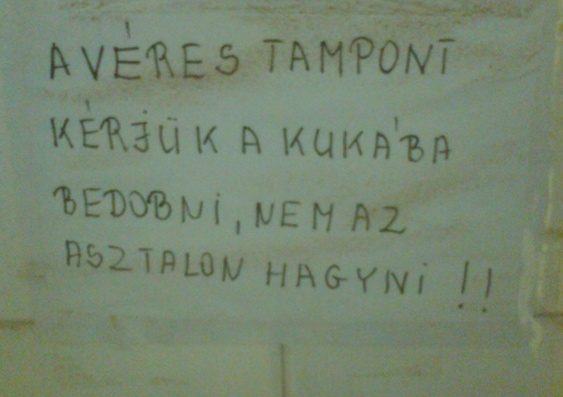 A VÉRES TAMPONT
KÉRJÜK A KUKÁBA
BEDOBNI, NEM AZ
ASZTALON HAGYNI !!